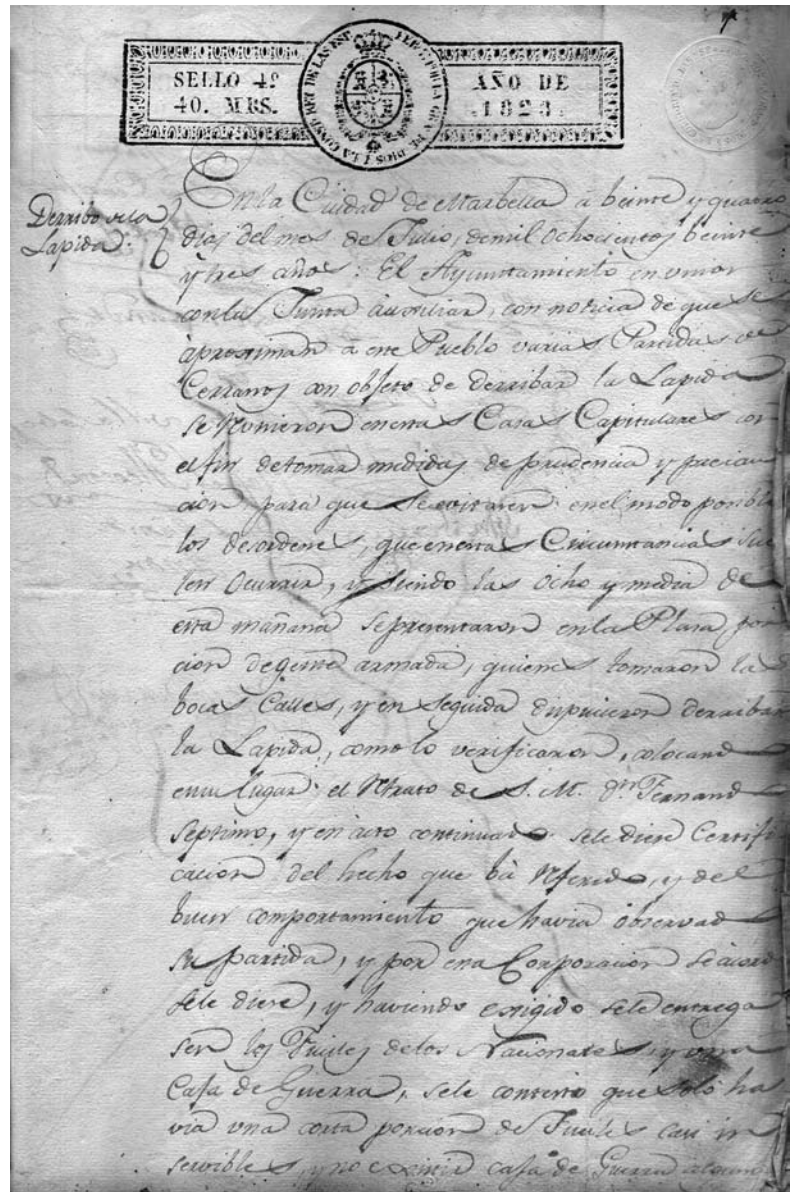 SELLO 4º
40. MRS.
AÑO DE
1823.
Derribo de la
Lapida.
En la Ciudad de Marbella à beinte y quatro
dias del mes de Julio, de mil ochocientos beinte
y tres años: El Ayuntamiento en union
con la Junta auxiliar, con noticia de que se
aproximan à este Pueblo varias Partidas de
Cerranos con objeto de derribar la Lapida
se reunieron en estas Casas Capitulares con
el fin de tomar medidas de prudencia y precau
cion para que se evitaren en el modo posible
los desordenes, que en estas Circunstancias sue
len Ocurrir, y siendo las ocho y media de
esta mañana se presentaron en la Plasa, por
cion de gente armada, quienes tomaron las
bocas Calles, y en seguida dispucieron derribar
la Lapida, como lo verificaron, colocando
en su lugar el retrato de S. M. Dn Fernando
septimo, y en acto continuado se le diese Certifi
cacion del hecho que bà referido, y del
buen comportamiento que havia observado
su partida, y por esta Corporacion se acordó
se le diese, y haviendo exigido se le entrega
sen los Fusiles de los Nacionales, y una
Caja de Guerra, se le contestó que solo ha
via una corta porcion de Fusiles casi in
servibles, y no existir caja de Guerra alguna